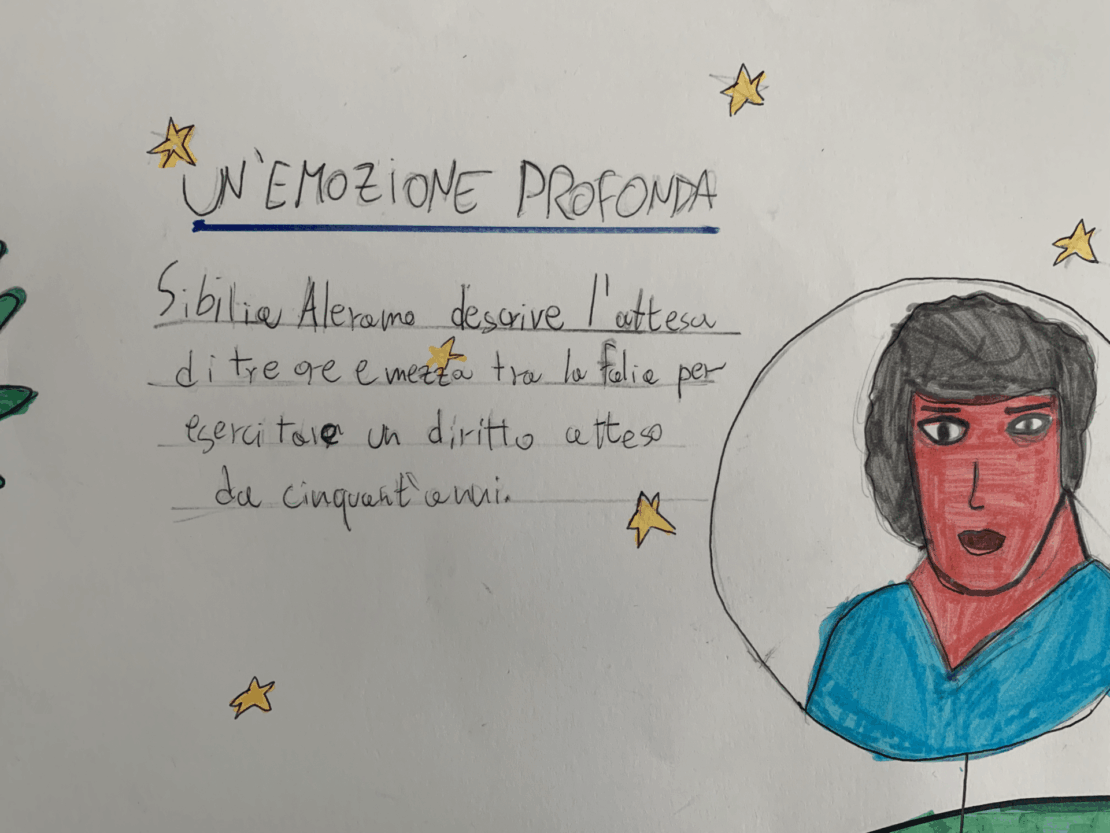 UN'EMOZIONE PROFONDA
Sibilia Aleramo descrive l'attesa
di tre ore e mezza tra la folla per
esercitare un diritto atteso
da cinquant'anni.